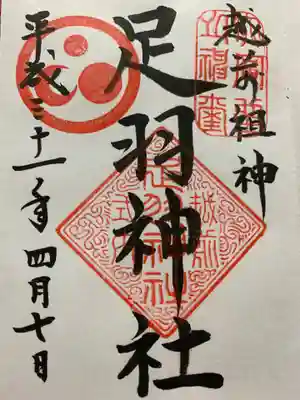 越前祖神
足羽神社
平成三十一年四月七日
足羽神社
越前